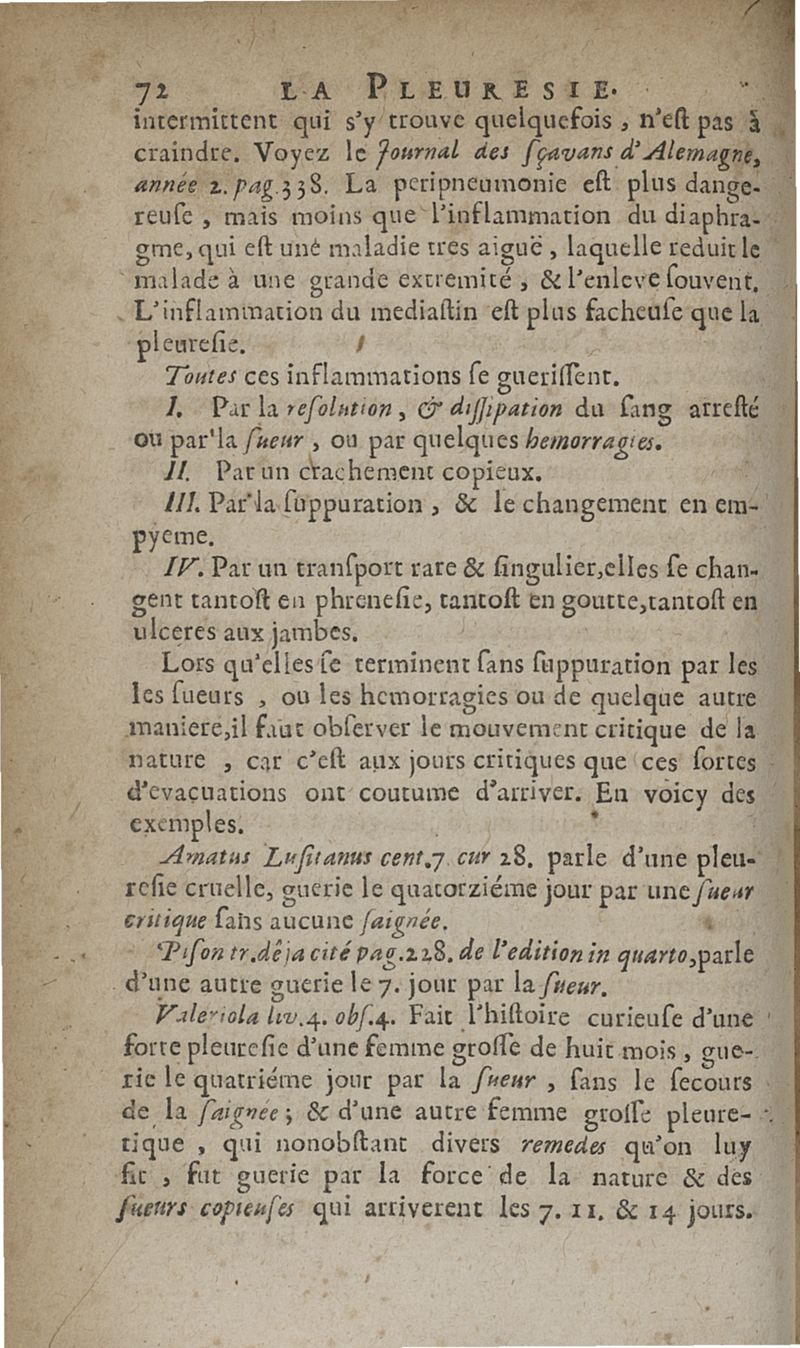 72 LA PLEURESIE.
intermittent qui s'y trouve quelquefois, n'eſt pas à
craindre. Voyez le Journal des ſçavans d'Alemagne,
année 2. pag. 338. La peripneumonie eſt plus dange-
reuſe, mais moins que l'inflammation du diaphra-
gme, qui eſt uné maladie tres aiguë, laquelle reduit le
malade à une grande extremité, & l'enleve ſouvent.
L'inflammation du mediaſtin eſt plus facheuſe que la
pleureſie.
Toutes ces inflammations ſe gueriſſent.
I. Par la reſolution, & diſſipation du ſang arreſté
ou par la ſueur, ou par quelques hemorragies.
II. Par un crachement copieux.
III. Par la ſuppuration, & le changement en em-
pyeme.
IV. Par un tranſport rare & ſingulier, elles ſe chan-
gent tantoſt en phreneſie, tantoſt en goutte, tantoſt en
ulceres aux jambes.
Lors qu'elles ſe terminent ſans ſuppuration par les
les ſueurs, ou les hemorragies ou de quelque autre
maniere, il faut obſerver le mouvement critique de la
nature, car c'eſt aux jours critiques que ces ſortes
d'evacuations ont coutume d'arriver. En voicy des
exemples.
Amatus Luſitanus cent. 7 cur 28. parle d'une pleu-
reſie cruelle, guerie le quatorziéme jour par une ſueur
critique ſans aucune ſaignée.
Piſon tr. déja cité pag. 228. de l'edition in quarto, parle
d'une autre guerie le 7. jour par la ſueur.
Valeriola liv. 4. obſ. 4. Fait l'hiſtoire curieuſe d'une
forte pleureſie d'une femme groſſe de huit mois, gue-
rie le quatriéme jour par la ſueur, ſans le ſecours
de la ſaignée; & d'une autre femme groſſe pleure-
tique, qui nonobſtant divers remedes qu'on luy
fit, fut guerie par la force de la nature & des
ſueurs copieuſes qui arriverent les 7. 11. & 14 jours.